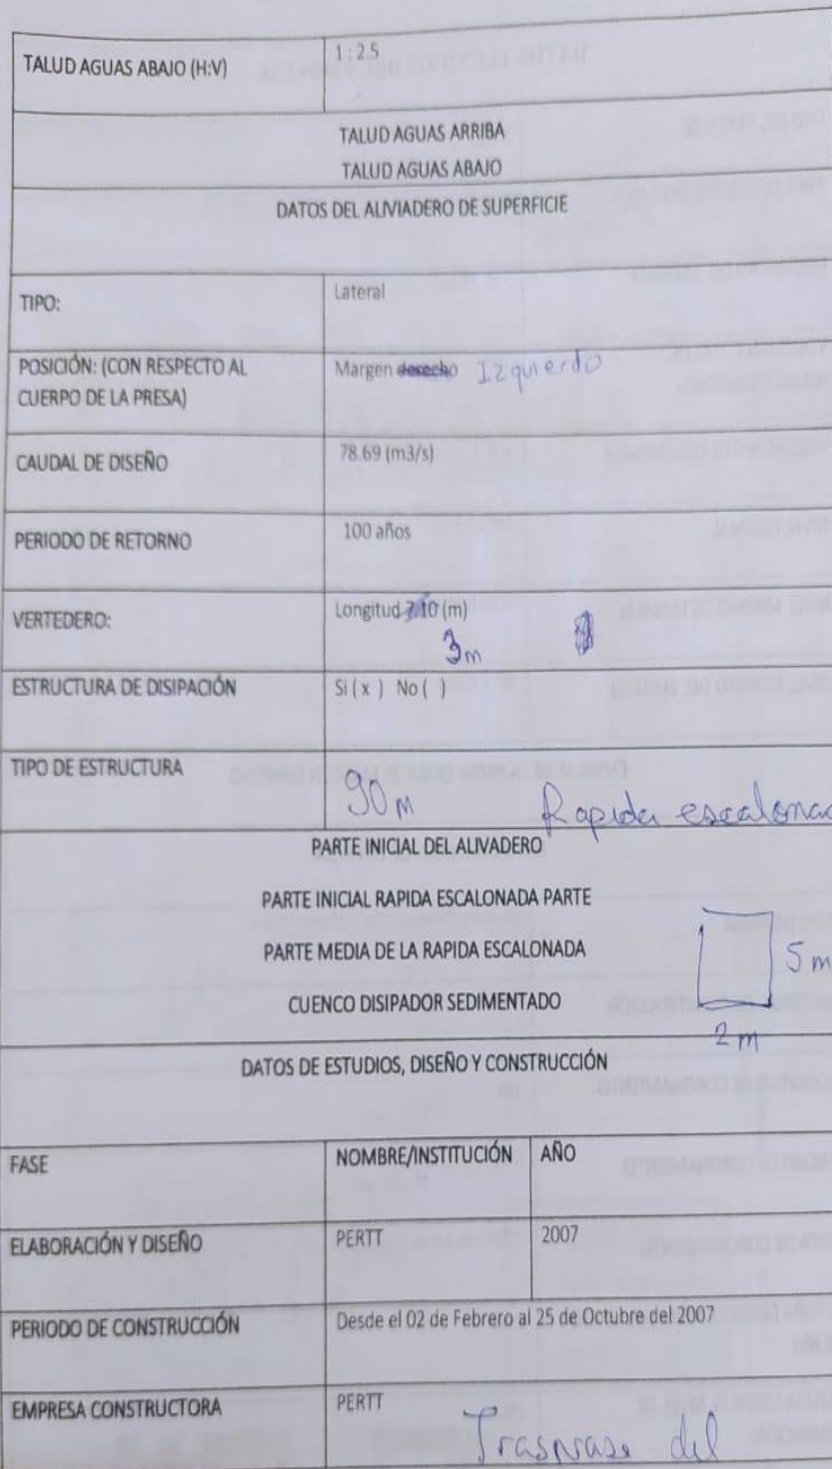 TALUD AGUAS ABAJO (H:V) 1:2.5
TALUD AGUAS ARRIBA
TALUD AGUAS ABAJO
DATOS DEL ALIVIADERO DE SUPERFICIE
TIPO: Lateral
POSICIÓN: (CON RESPECTO AL CUERPO DE LA PRESA) Margen derecho Izquierdo
CAUDAL DE DISEÑO 78.69 (m3/s)
PERIODO DE RETORNO 100 años
VERTEDERO: Longitud (m)
3m
ESTRUCTURA DE DISIPACIÓN Si ( x ) No ( )
TIPO DE ESTRUCTURA 90 m Rapida escalonad
PARTE INICIAL DEL ALIVADERO
PARTE INICIAL RAPIDA ESCALONADA PARTE
PARTE MEDIA DE LA RAPIDA ESCALONADA
5 m
CUENCO DISIPADOR SEDIMENTADO
2 m
DATOS DE ESTUDIOS, DISEÑO Y CONSTRUCCIÓN
FASE NOMBRE/INSTITUCIÓN AÑO
ELABORACIÓN Y DISEÑO PERTT 2007
PERIODO DE CONSTRUCCIÓN Desde el 02 de Febrero al 25 de Octubre del 2007
EMPRESA CONSTRUCTORA PERTT
del